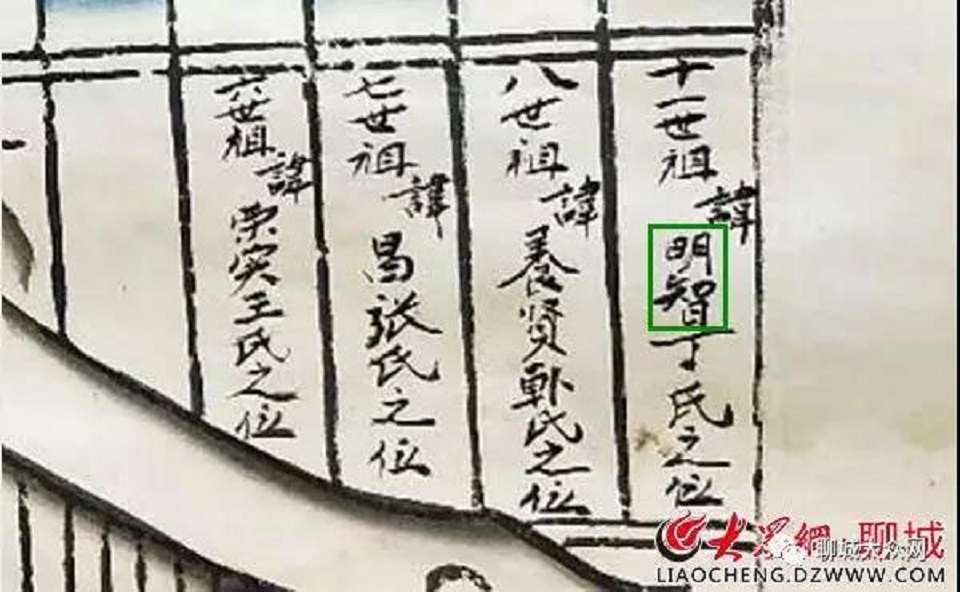 十一世祖諱明智丁氏之位
八世祖諱養贤郭氏之位
七世祖諱昌张氏之位
六世祖諱荣实王氏之位
大眾網·聊城
聊城大众网
LIAOCHENG.DZWWW.COM